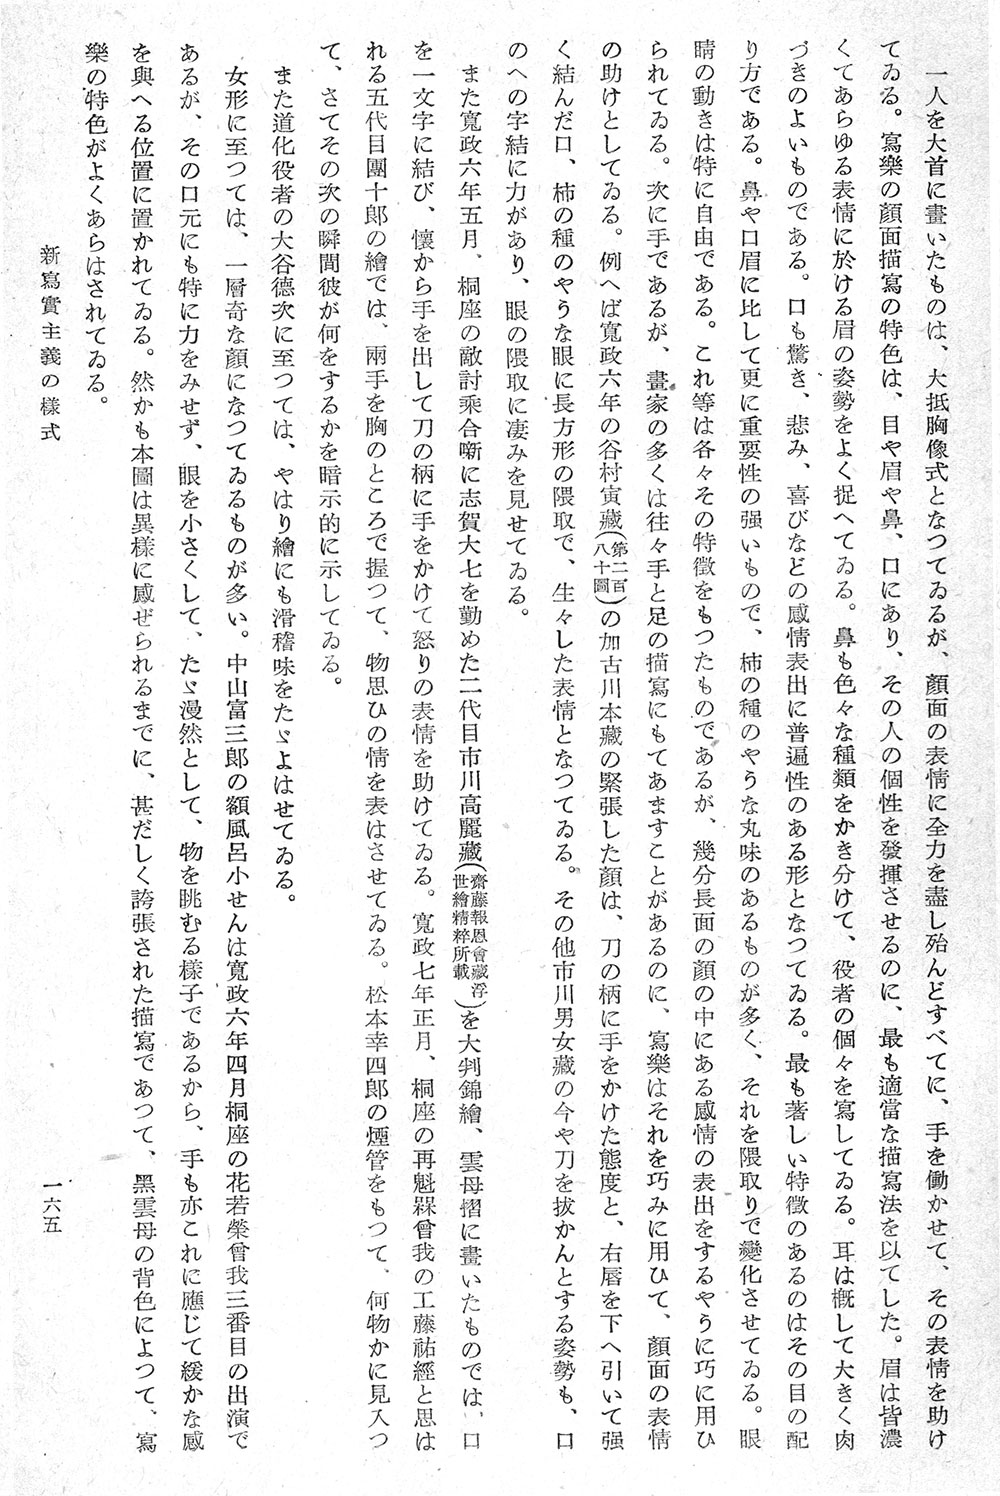 一人を大首に畫いたものは、大抵胸像式となつてゐるが、顏面の表情に全力を盡し殆んどすべてに、手を働かせて、その表情を助け
てゐる。寫樂の顏面描寫の特色は、目や眉や鼻、口にあり、その人の個性を發揮させるのに、最も適當な描寫法を以てした。眉は皆濃
くてあらゆる表情に於ける眉の姿勢をよく捉へてゐる。鼻も色々な種類をかき分けて、役者の個々を寫してゐる。耳は槪して大きく肉
づきのよいものである。口も驚き、悲み、喜びなどの感情表出に普遍性のある形となつてゐる。最も著しい特徵のあるのはその目の配
り方である。鼻や口眉に比して更に重要性の强いもので、柿の種のやうな丸味のあるものが多く、それを隈取りで變化させてゐる。眼
睛の動きは特に自由である。これ等は各々その特徵をもつたものであるが、幾分長面の顏の中にある感情の表出をするやうに巧に用ひ
られてゐる。次に手であるが、畫家の多くは往々手と足の描寫にもてあますことがあるのに、寫樂はそれを巧みに用ひて、顏面の表情
の助けとしてゐる。例へば寬政六年の谷村寅藏(第二百八十圖)の加古川本藏の緊張した顏は、刀の柄に手をかけた態度と、右唇を下へ引いて强
く結んだ口、柿の種のやうな眼に長方形の隈取で、生々した表情となつてゐる。その他市川男女藏の今や刀を拔かんとする姿勢も、口
のへの字結に力があり、眼の隈取に凄みを見せてゐる。
また寬政六年五月、桐座の敵討乘合噺に志賀大七を勤めた二代目市川高麗藏(齋藤報恩會藏浮世繪精粹所載)を大判錦繪、雲母摺に畫いたものでは、口
を一文字に結び、懷から手を出して刀の柄に手をかけて怒りの表情を助けてゐる。寬政七年正月、桐座の再魁槑曾我の工藤祐經と思は
れる五代目團十郞の繪では、兩手を胸のところで握つて、物思ひの情を表はさせてゐる。松本幸四郞の煙管をもつて、何物かに見入つ
て、さてその次の瞬間彼が何をするかを暗示的に示してゐる。
また道化役者の大谷德次に至つては、やはり繪にも滑稽味をたゞよはせてゐる。
女形に至つては、一層奇な顏になつてゐるものが多い。中山富三郞の額風呂小せんは寬政六年四月桐座の花若榮曾我三番目の出演で
あるが、その口元にも特に力をみせず、眼を小さくして、たゞ漫然として、物を眺むる樣子であるから、手も亦これに應じて緩かな感
を與へる位置に置かれてゐる。然かも本圖は異樣に感ぜられるまでに、甚だしく誇張された描寫であつて、黑雲母の背色によつて、寫
樂の特色がよくあらはされてゐる。
新寫實主義の樣式
一六五